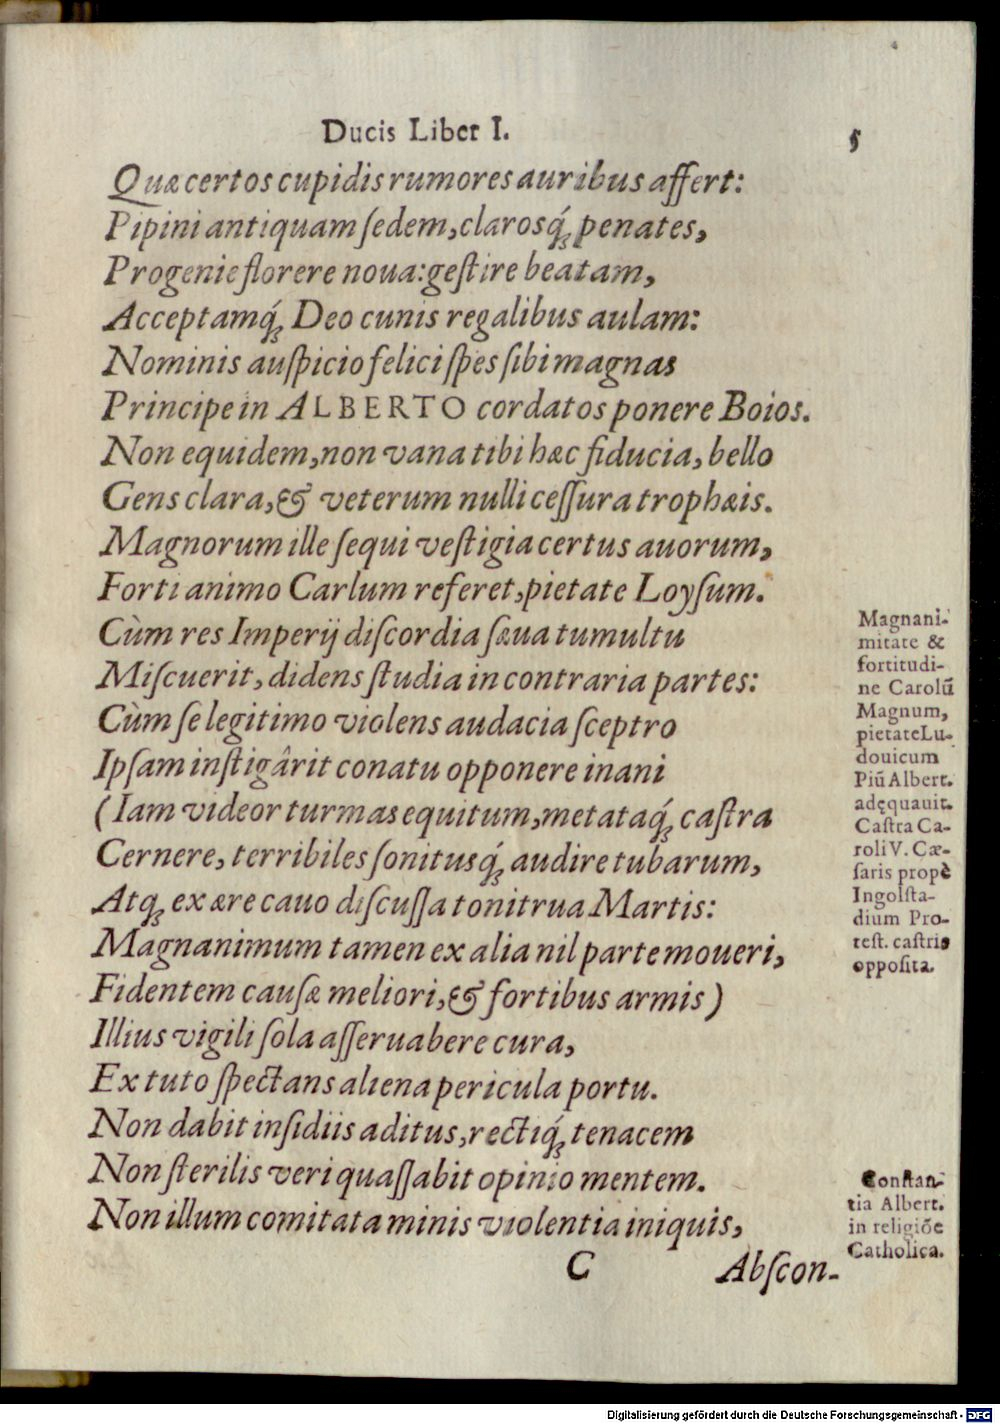 Ducis Liber I.
5
Quæ certos cupidis rumores auribus affert:
Pipini antiquam ſedem, clarosq́ꝫ penates,
Progenie florere noua: geſtire beatam,
Acceptamq́ꝫ Deo cunis regalibus aulam:
Nominis auſpicio felici ſpes ſibi magnas
Principe in ALBERTO cordatos ponere Boios.
Non equidem, non vana tibi hæc fiducia, bello
Gens clara, & veterum nulli ceſſura trophæis.
Magnorum ille ſequi veſtigia certus auorum,
Forti animo Carlum referet, pietate Loyſum.
Cùm res Imperij diſcordia ſæua tumultu
Miſcuerit, didens ſtudia in contraria partes:
Cùm ſe legitimo violens audacia ſceptro
Ipſam inſtigârit conatu opponere inani
(Iam videor turmas equitum, metataq́ꝫ caſtra
Cernere, terribiles ſonitusq́ꝫ audire tubarum,
Atqꝫ ex ære cauo diſcuſſa tonitrua Martis:
Magnanimum tamen ex alia nil parte moueri,
Fidentem cauſæ meliori, & fortibus armis)
Illius vigili ſola aſſeruabere cura,
Ex tuto ſpectans aliena pericula portu.
Non dabit inſidiis aditus, rectiq́ꝫ tenacem
Non ſterilis veri quaſſabit opinio mentem.
Non illum comitata minis violentia iniquis,
C
Abſcon-
Magnani-
mitate &
fortitudi-
ne Carolū
Magnum,
pietate Lu-
douicum
Piū Albert.
adęquauit.
Caſtra Ca-
roli V. Cæ-
ſaris propè
Ingolſta-
dium Pro-
teſt. caſtris
oppoſita.
Conſtan-
tia Albert.
in religiōe
Catholica.
Digitalisierung gefördert durch die Deutsche Forschungsgemeinschaft - DFG